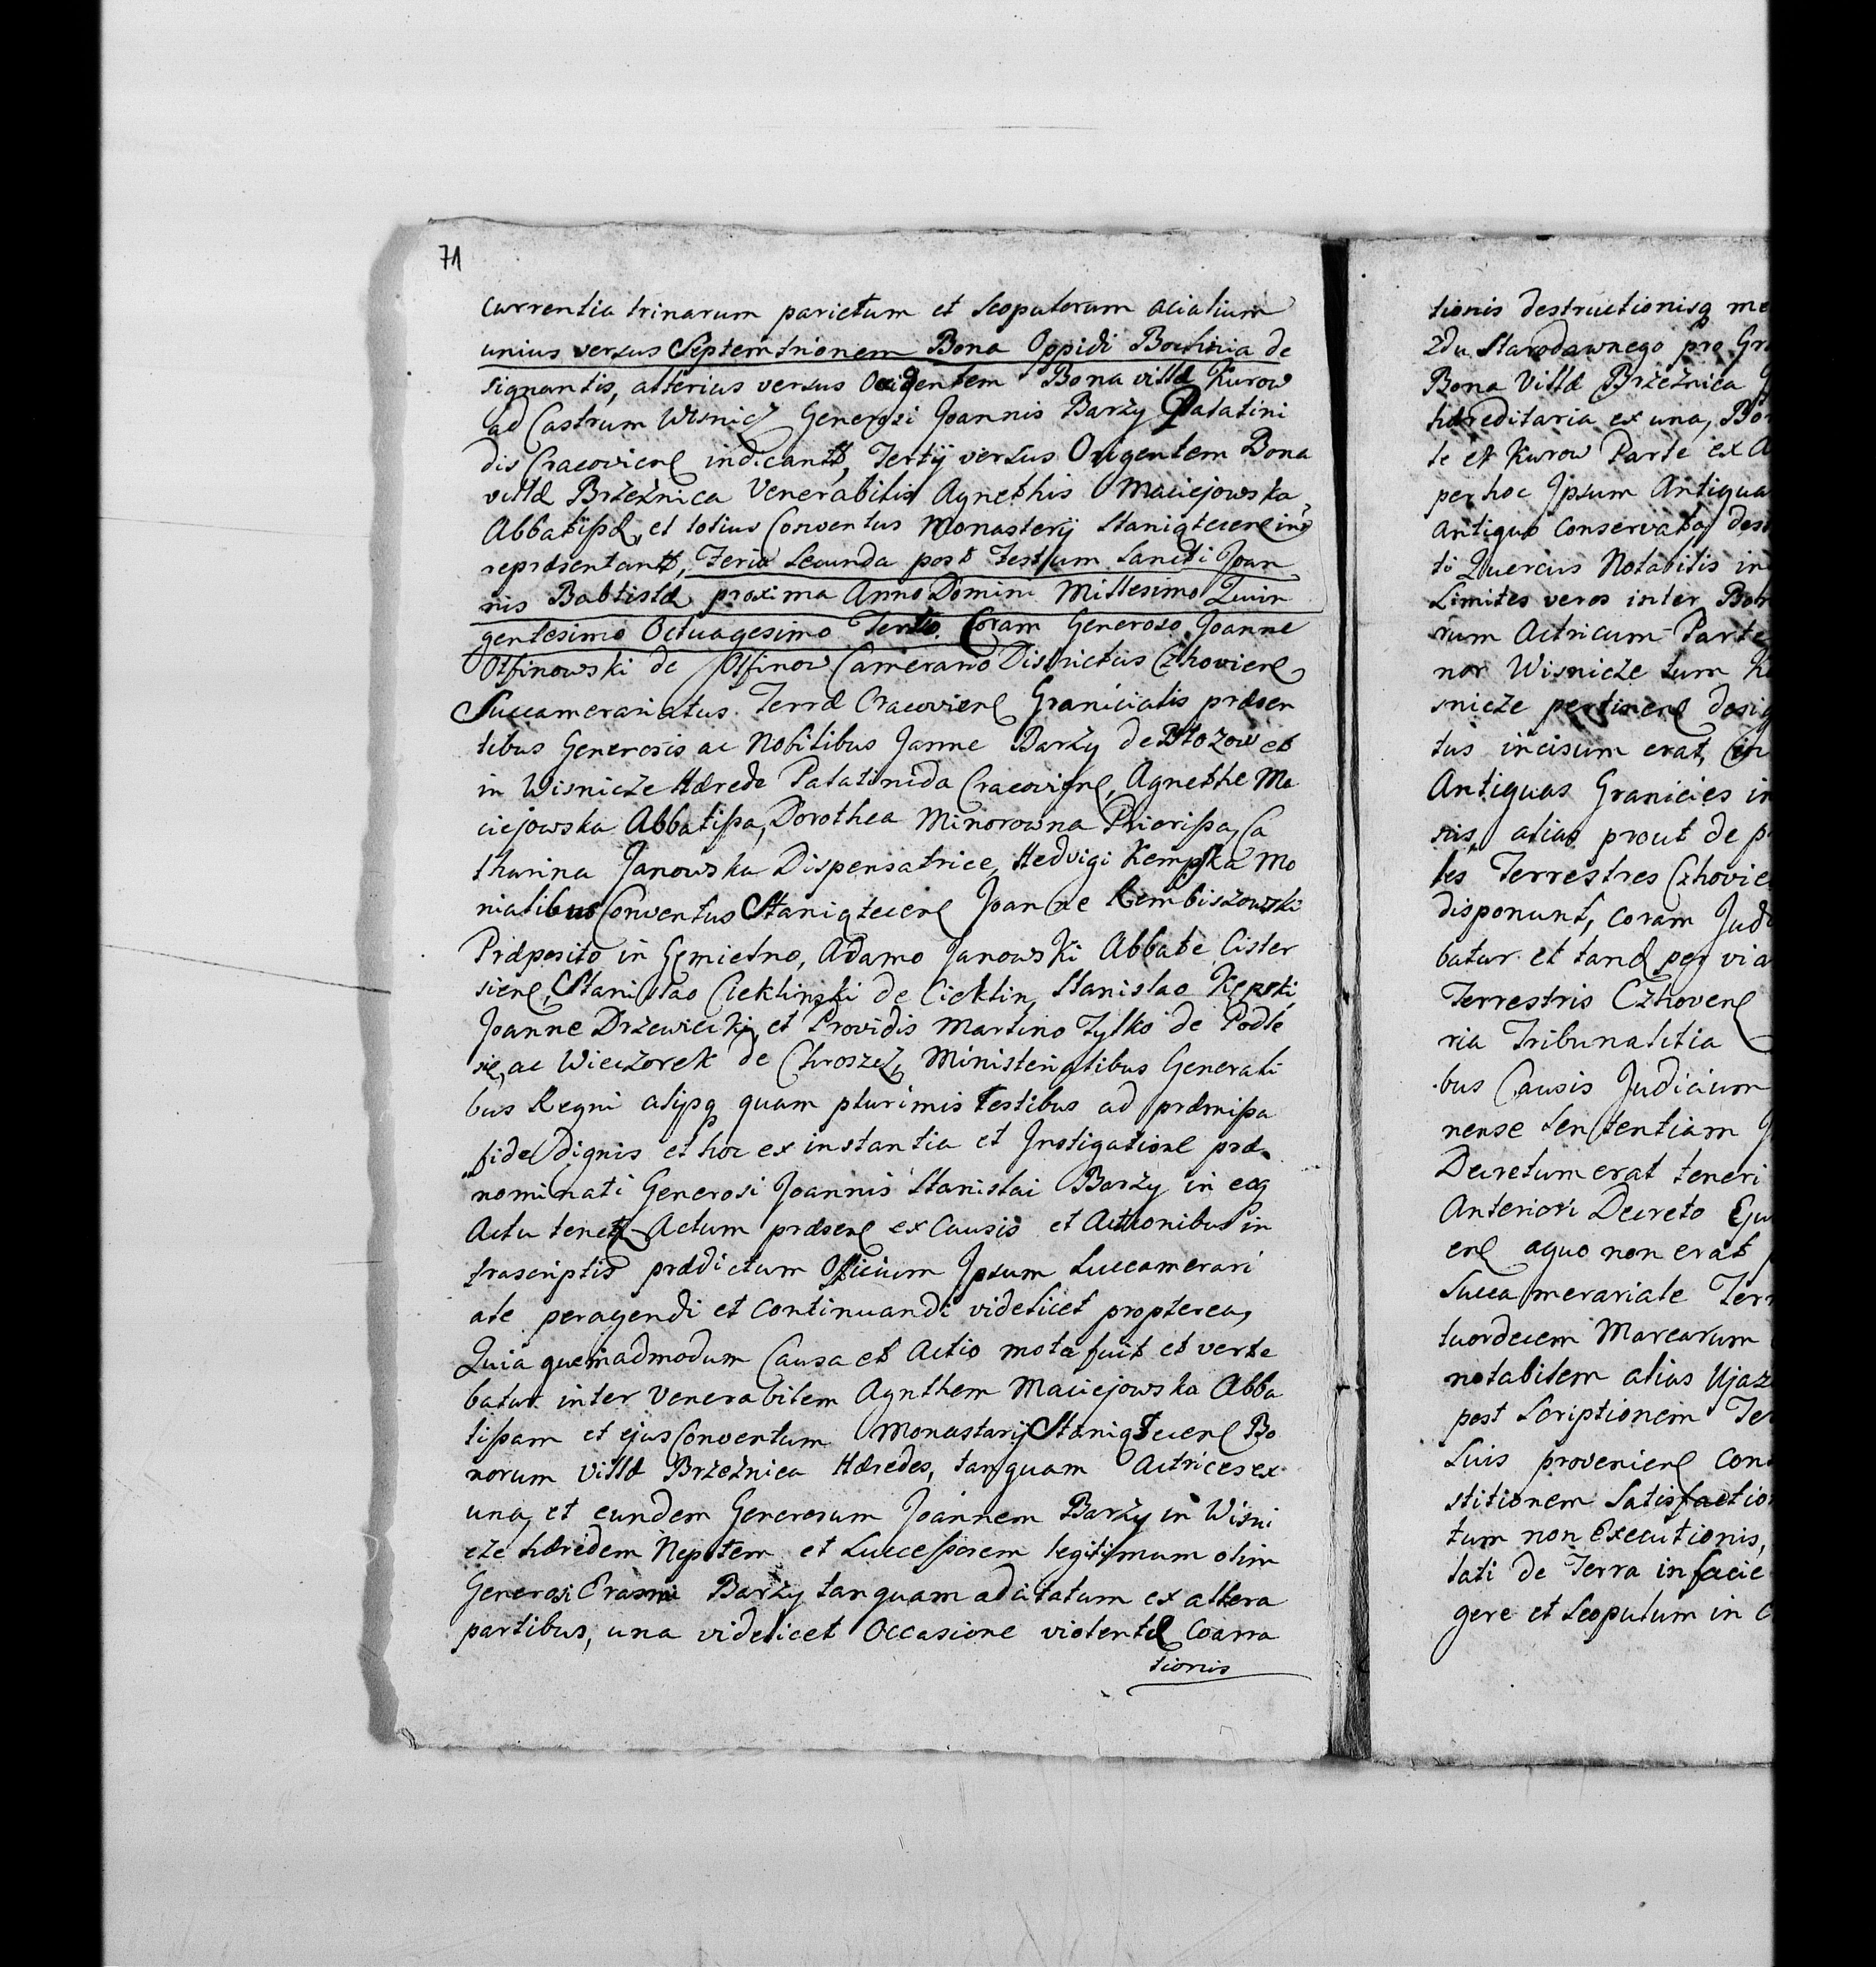 71
currentia trinarum parietum et Scopulorum acialium
unius versus Septemtrionem Bona Oppidi Bochnia de
signantis, alterius versus Occidentem Bona villæ Kurow
ad Castrum Wisnicz Generosi Joannis Barzy Palatini
dis Cracovien indicantt, Tertij versus Origentem Bona
villæ Brzeznica Venerabilis Agnethis Maciejowska
Abbatissæ, et totius Conventus Monasterij Staniątecen
repræsentantt, Feria Secunda post Festum Sancti Joan
nis Babtistæ proxima Anno Domini Millesimo Quin
gentesimo Octuagesimo Tertio. Coram Generoso Joanne
Otfinowski de Otfinow Camerario Districtus Czhovien
Succamerariatus Terræ Cracovien Graniciatis præsen
tibus Generosis ac Nobilibus Janne Barzy de Błozow et
in Wisnicze Hærede Palatinida Cracovien, Agnethe Ma
ciejowska Abbatissa, Dorothea Minorowna Priorissa, Ca
tharina Janowska Dispensatrice, Hedvigi Kempska Mo
nialibus Conventus Staniątecen Joanne Rembiszowski
Præposito in Gemielno, Adamo Janowski Abbate Cister
sien, Stanislao Cieklinski de Cieklin, Stanislao Kępski,
Joanne Drzewiecki, et Providis Martino Tylko de Podłe
sie, ac Wieczorek de Chroszcz, Ministerialibus Generali
bus Regni alijsq quam plurimis Testibus ad præmissa
fide dignis et hoc ex instantia et Instigatione præ
nominati Generosi Joannis Stanislai Barzy in eaq
Actu tenett Actum præsen ex Causis et Actionibus in
frascriptis prædictum Officium Ipsum Succamerari
ale peragendi et Continuandi videlicet propterea,
Quia quemadmodum Causa et Actio mota fuit et verte
batur inter Venerabilem Agnthem Maciejowska Abba
tissam et ejus Conventum Monastarij Staniątecen Bo
norum Villæ Brzeznica Hæredes, tanquam Actrices ex
una, et eundem Generosum Joannem Barzy in Wisni
cze hæredem Nepotem et Successorem legitimum olim
Generosi Erasmi Barzy tanquam adcitatum ex altera
partibus, una videlicet Occasione violentæ Coarra
tionis
tionis destructionisq me
zdu Starodawnego pro Gra
Bona Villæ Brzeznica
hæreditaria ex una, Bo
te et Kurow Parte ex A
per hoc Ipsum Antiqua
Antiquo Conservata, des
ti Quercus Notabilis in
Limites veros inter Bon
rum Actricum Parte
nor Wisnicze tum
snicze pertinen desig
tus incisum erat,
Antiquas Granicies in
nis, alias prout de p
les Terrestres Czhovie
disponunt, coram Judi
batur et tand per via
Terrestris Czhoven
ria Tribunalitia
bus Causis Judicium
nense Sententiam
Decretum erat teneri
Anteriori Decreto Eju
en aquo non erat
Succamerariale Terr
tuordecem Marcarum
notabilem alias Ujaz
post Scriptionem Ter
Suis provenien Con
stitionem Satisfaction
tum non Executionis,
tati de Terra in facie
gere et Scopulum in